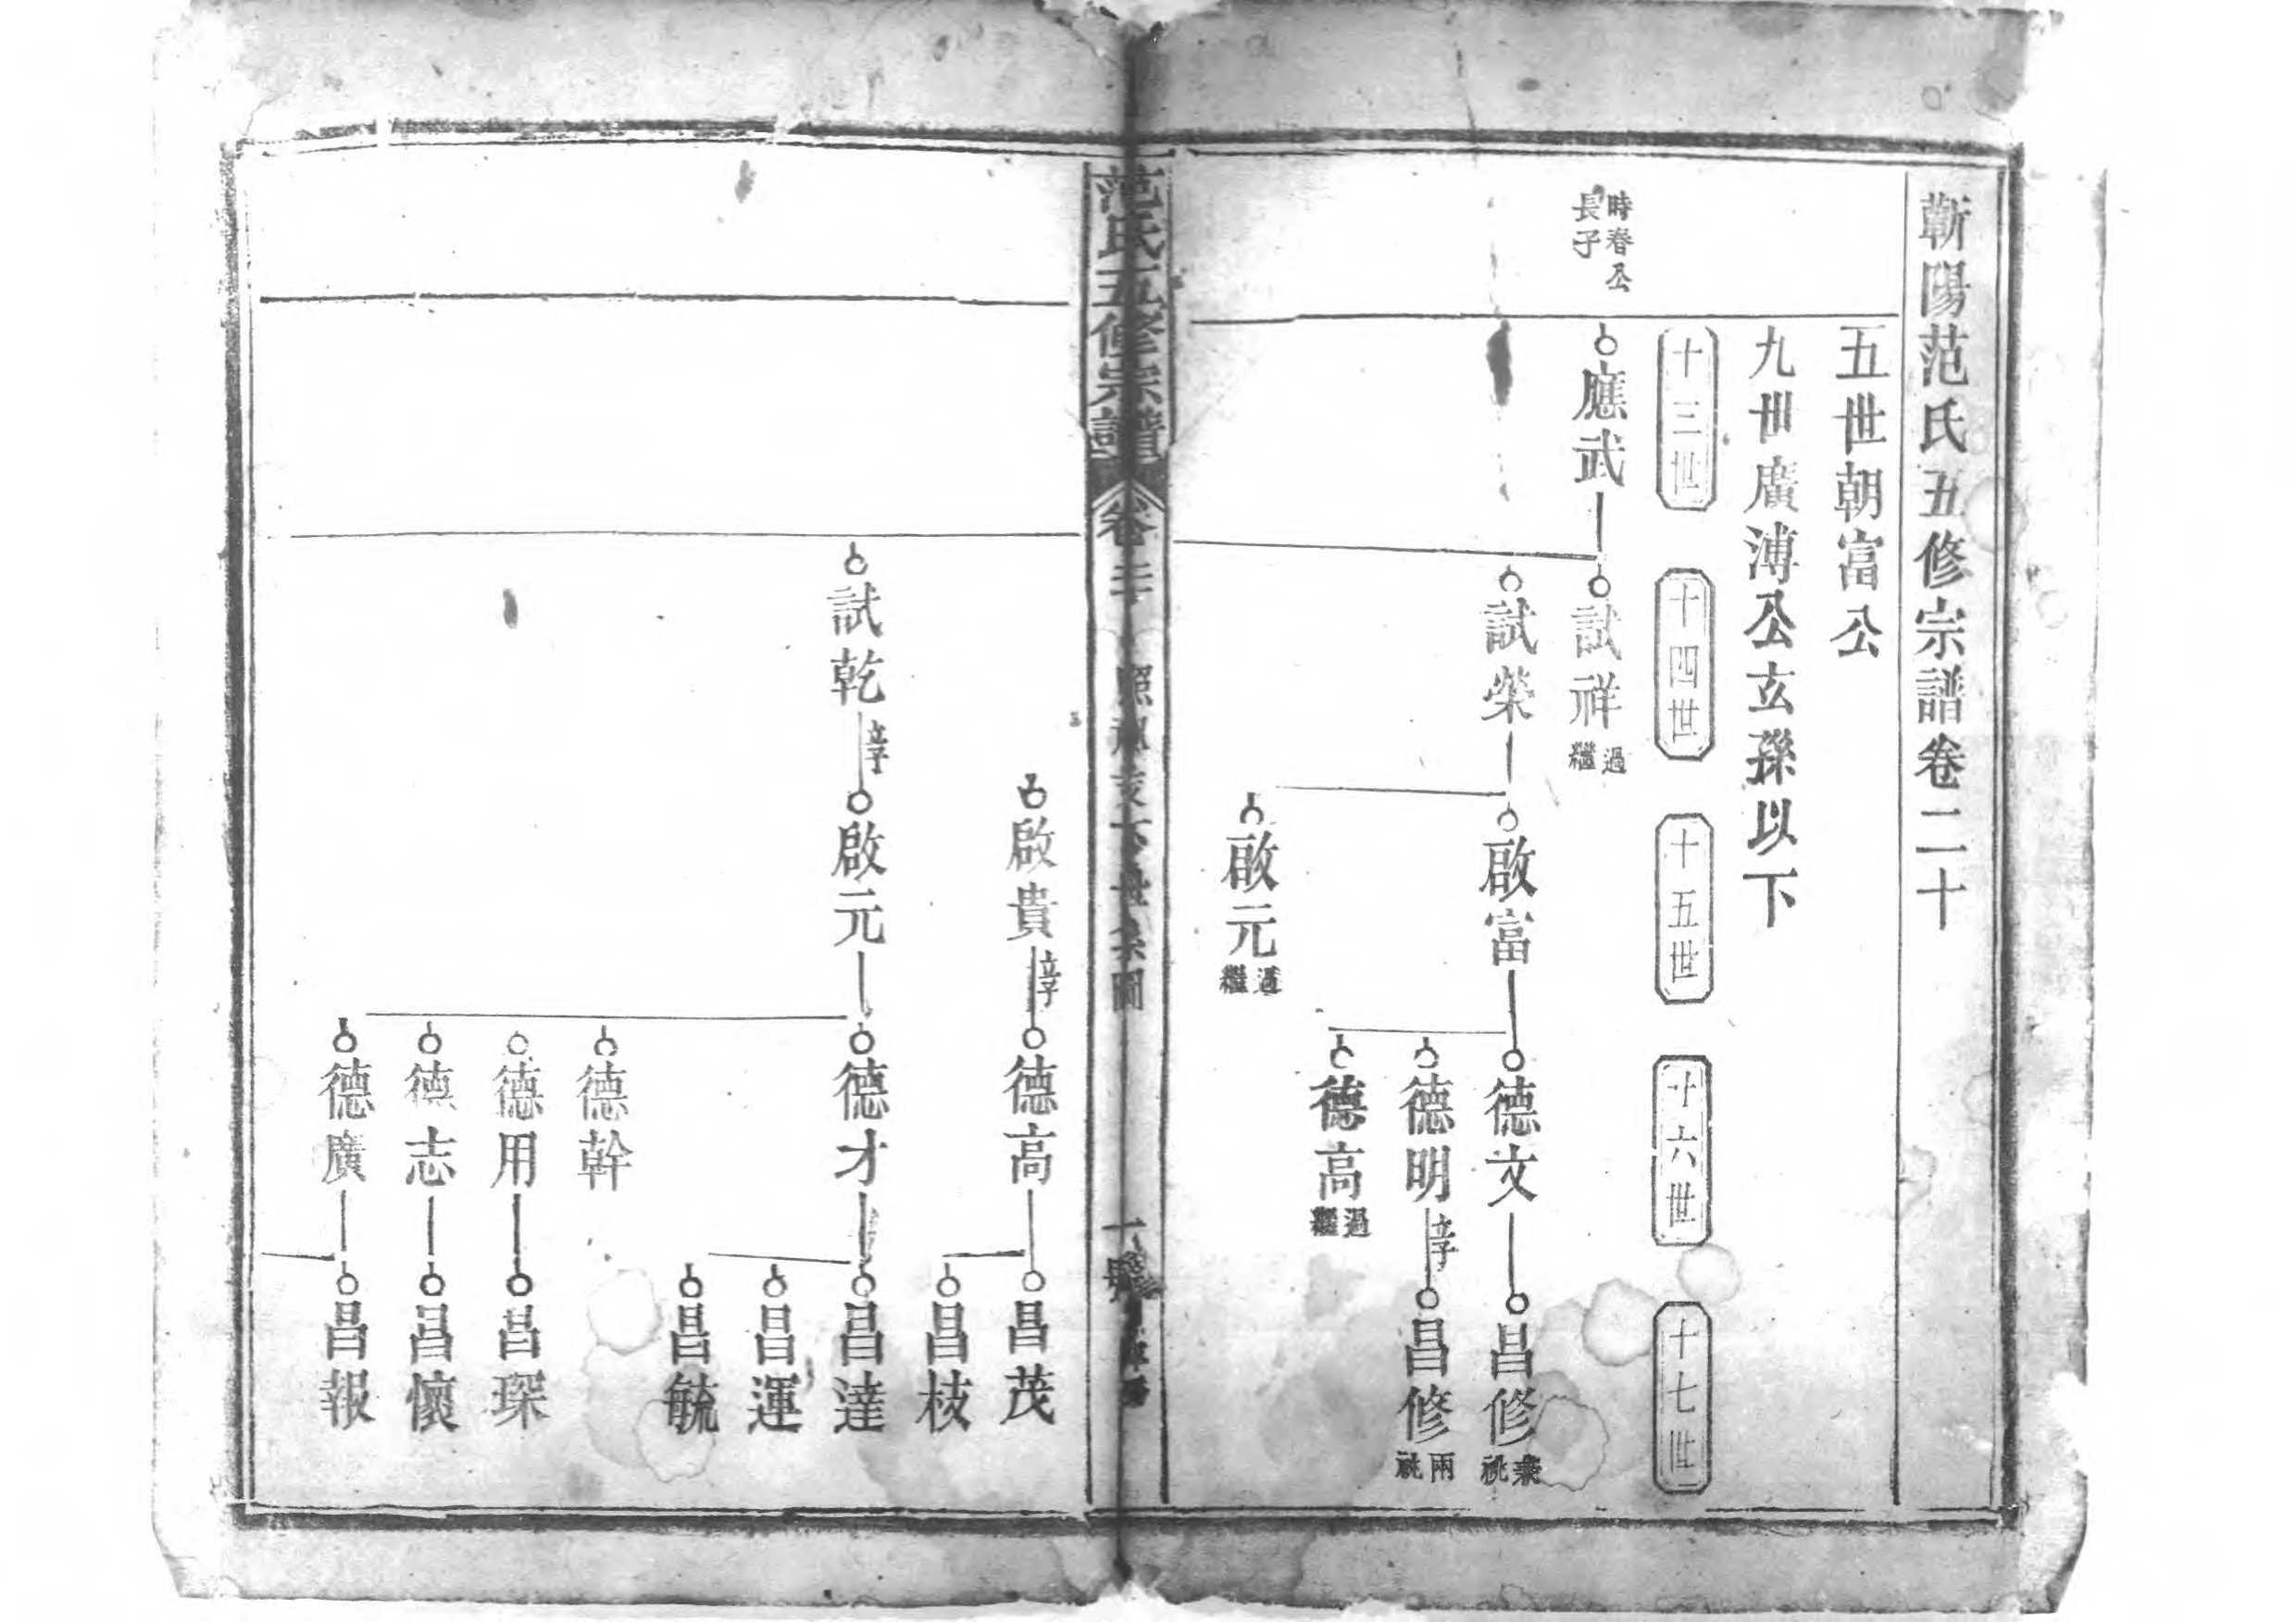 蘄陽范氏五修宗譜卷二十
五世朝富公
九世廣溥公玄孫以下
十三世
十四世
十五世
十六世
十七世
時春公
長子
應武
試祥
過繼
試榮
啟富
德文
昌修
兼祧
德明
昌修
兩祧
德高
過繼
啟元
過繼
范氏五修宗譜
卷二十
啟貴
德高
昌茂
昌枝
試乾
啟元
德才
昌達
昌運
昌毓
德幹
德用
昌琛
德志
昌懷
德廣
昌報